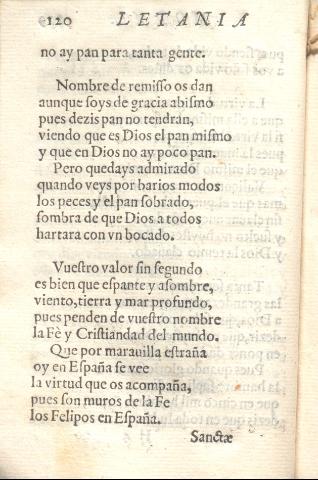 120 LETANIA
no ay pan para tanta gente.
Nombre de remisso os dan
aunque soys de gracia abismo
pues dezis pan no tendran,
viendo que es Dios el pan mismo
y que en Dios no ay poco pan.
Pero quedays admirado
quando veys por barios modos
los peces y el pan sobrado,
sombra de que Dios a todos
hartara con vn bocado.
Vuestro valor sin segundo
es bien que espante y asombre,
viento, tierra y mar profundo,
pues penden de vuestro nombre
la Fè y Cristiandad del mundo.
Que por marauilla estraña
oy en España se vee
la virtud que os acompaña,
pues son muros de la Fe
los Felipos en España.
Sanctæ